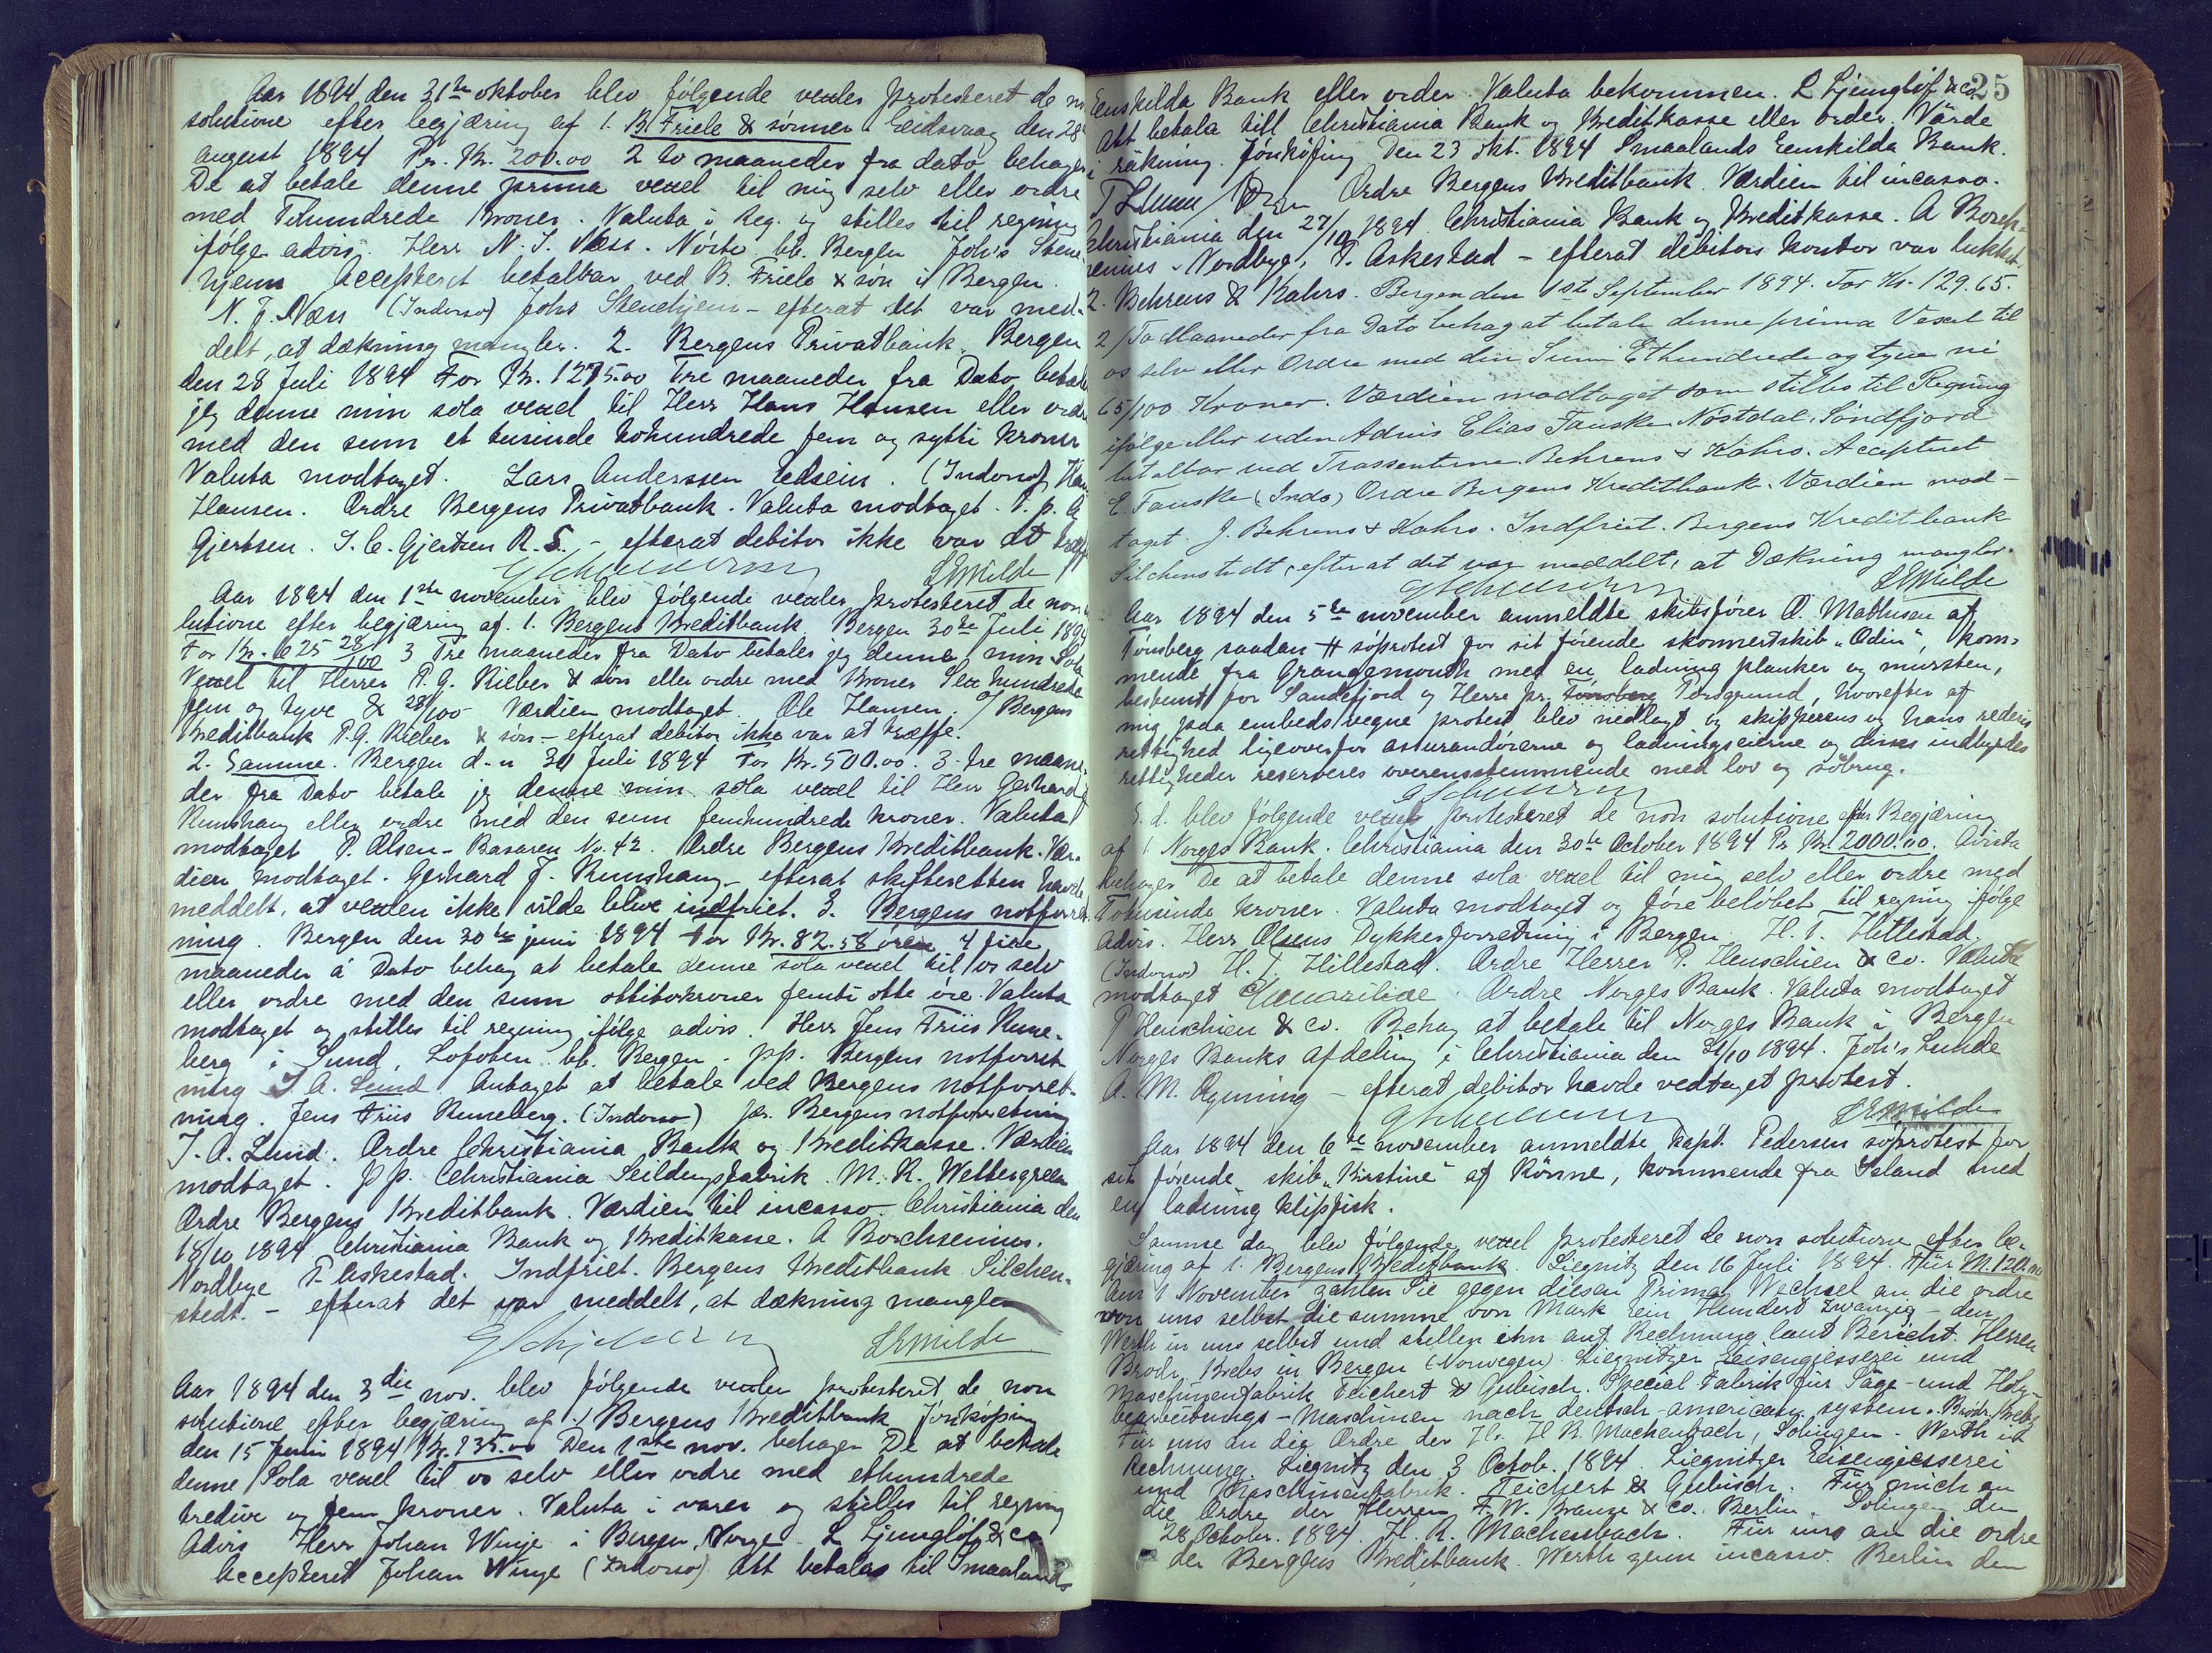 Aar 1894 den 31te oktober blev følgende vexler protesteret de no
solutione efter begjæring af 1. B. Friele & sønner Eidsvaag den 28de
august 1894 Pr. Kr. 200.00 2 to maaneder fra dato behager
De at betale denne prima vexel til mig selv eller ordre
med Tohundrede Kroner. Valuta i Reg. og stilles til regning
ifølge advis. Herr N. J. Næss. Nórte bb. Bergen Joh's Stene
hjem Accepteret betalbar ved B. Friele & søn i Bergen.
N. J. Næss (Indosso) Johs Stenehjem - efterat det var med-
delt, at dækning mangler. 2. Bergens Privatbank. Bergen
den 28 Juli 1894 For Kr. 1275.00 Tre maaneder fra Dato betaler
jeg denne min sola vexel til Herr Hans Hansen eller ordre
med den sum et tusinde tohundrede fem og sytti kroner
Valuta modtaget. Lars Anderssen Edsein. (Indosso) Han
Hansen. Ordre Bergens Privatbank. Valuta modtaget. P. p. A
Gjertsen. J. C. Gjertzen R. S. - efterat debitor ikke var at træffe
LEMilde
Aar 1894 den 1ste november blev følgende vexler protesteret de non
lutione efter begjæring af. 1. Bergens Kreditbank Bergen 30te Juli 1894
For Kr. 625 28/100 3 Tre maaneder fra Dato betaler jeg denne min Sola
Vexel til Herrer P. G. Rieber & søn eller ordre med Kroner Sex hundrede
fem og tyve & 28/100 Værdien modtaget. Ole Hansen. o/ Bergens
Kreditbank P. G. Rieber & søn - efterat debitor ikke var at træffe.
2. Samme. Bergen d-n 30 Juli 1894 For Kr. 500.00. 3 tre maane-
der fra Dato betale jeg denne min sola vexel til Herr Gerhard
Kunshaug eller ordre med den sum femhundrede kroner. Valuta
modtaget P. Olsen - Basaren No. 42. Ordre Bergens Kreditbank. Vær-
dien modtaget. Gerhard J. Kunshaug - efterat skifteretten havde
meddelt, at vexlen ikke vilde blive indfriet. 3. Bergens notforret-
ning. Bergen den 30te juni 1894 For Kr. 82.58 øre 4 fire
maaneder á Dato behag at betale denne sola vexel til os selv
eller ordre med den sum ottitokroner femti otte øre. Valuta
modtaget og stilles til regning ifølge advis. Herr Jens Friis Rune-
berg i Sund, Lofoten. bb. Bergen. pp. Bergens notforret-
ning J. A. Lund Antaget at betale ved Bergens notforret-
ning. Jens Friis Runeberg. (Indosso) pr. Bergens notforretning
J. A. Lund. Ordre Christiania Bank og Kreditkasse. Værdien
modtaget. pp. Christiania Seildugsfabrik M. R. Wettergreen
Ordre Bergens Kreditbank. Værdien til incasso. Christiania den
18/10 1894. Christiania Bank og Kreditkasse. A Borchsenius.
Nordbye P. Askestad. Indfriet. Bergens Kreditbank Silchen-
stedt. - efterat det var meddelt, at dækning mangler
LEMilde
Aar 1894 den 3die nov. blev følgende vexler protesteret de non
solutione efter begjæring af 1. Bergens Kreditbank Jönköping
den 15 Juni 1894 Kr. 135.00 Den 1ste nov. behager De at betale
denne Sola vexel til os selv eller ordre med ethundrede
tredive og fem kroner. Valuta i varer og stilles til regning
Advis Herr Johan Winje i Bergen, Norge. L Ljunglöf & co
Accepteret Johan Winje (Indosso) Att betalas til Smaalands
25
Eenskilda Bank eller order. Valuta bekommen. L Ljunglöf & co.
Att betala till Christiania Bank og Kreditkasse eller order. Värde
i räkning. Jönköping Den 23 okt. 1894 Smaalands Eenskilda Bank.
Ordre Bergens Kreditbank. Værdien til incasso.
Christiania den 27/10 1894. Christiania Bank og Kreditkasse. A Borch-
senius. Nordbye, P. Askestad - efterat debitors kontor var lukket.
2. Behrens & Kahrs. Bergen den 1ste September 1894. For Kr. 129.65.
2/ To Maaneder fra Dato behag at betale denne prima Vexel til
os selv eller Ordre med den Sum Ethundrede og tyve ni
65/100 Kroner. Værdien modtaget som stilles til Regning
ifølge eller uden Advis Elias Fauske Nøstdal. Søndfjord
betalbar ved Trassenterne. Behrens & Kahrs. Accepteret
E. Fauske (Indo) Ordre Bergens Kreditbank. Værdien mod-
taget. J. Behrens & Kahrs. Indfriet. Bergens Kreditbank
Silchenstedt, efterat det var meddelt, at Dækning mangler.
LEMilde
Aar 1894 den 5te november anmeldte skibsfører O. Mathisen af
Tønsberg saadan søprotest for sit førende skonnertskib "Odin", kom-
mende fra Grangemouth med en ladning planker og mursten,
bestemt for Sandefjord og Herre pr. Tønsberg Porsgrund, hvorefter af
mig paa embeds vegne protest blev nedlagt og skipperens og hans rederis
rettighed ligeoverfor assurandørerne og ladningseierne og disses indbyrdes
rettigheder reserveres overensstemmende med lov og søbrug.
S. d. blev følgende vexel protesteret de non solutione efter Begjæring
af 1 Norges Bank. Christiania den 30te October 1894 Pr Kr. 2000.00. Avista
behager De at betale denne sola vexel til mig selv eller ordre med
Totusinde kroner. Valuta modtaget og føre beløbet til regning ifølge
advis. Herr Olsens Dykkerforretning i Bergen. H. T. Hillestad.
(Indosso) H. T. Hillestad. Ordre Herrer P. Henschien & co. Valuta
modtaget Ordre Norges Bank. Valuta modtaget
P Henschien & co. Behag at betale til Norges Bank i Bergen
Norges Banks afdeling i Christiania den 31/10 1894. Joh's Lunde
A. M. Rynning - efterat debitor havde vedtaget protest.
LEMilde
Aar 1894 den 6te november anmeldte kapt. Pedersen søprotest for
sit førende skib "Kirstine" af Rönne, kommende fra Island med
en ladning klipfisk.
Samme dag blev følgende vexel protesteret de non solutione efter be-
gjæring af 1. Bergens Kreditbank. Liegnitz den 16 Juli 1894. Für M. 120.00
Am 1 November zahlen Sie gegen diesen Prima Wechsel an die ordre
von uns selbst die summe von Mark Ein Hundert Zwanzig - den
Werth in uns selbst und stellen ihn auf Rechnung laut Bericht. Herren
Brødr. Krebs in Bergen (Norwegen). Liegnitzer Eisengiesserei und
Maschinenfabrik Teichert & Gubisch. Special-Fabrik für Säge- und Holz-
bearbeitungs-Maschinen nach deutsch-american system. Brödr. Krebs
Für uns an die Ordre der Hr. H R. Machenbach, Solingen. Werth in
Rechnung. Liegnitz den 3 Octob. 1894. Liegnitzer Eisengiesserei
und Maschinenfabrik. Teichert & Gubisch. Für mich an
die Ordre der Herren F. W. Krause & Co. Berlin. Solingen den
28 October. 1894. H. R. Machenbach. Für uns an die ordre
der Bergens Kreditbank. Werth zum incasso. Berlin den